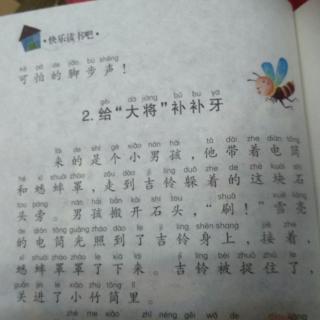 ·快乐读书吧·
kě pà de jiǎo bù shēng
可怕的脚步声！
gěi dà jiàng bǔ bu yá
2.给“大将”补补牙
lái de shì gè xiǎo nán hái tā dài zhe diàn tǒng
来的是个小男孩，他带着电筒
hé xī shuài zhào zǒu dào jí líng duǒ zhe de zhè kuài shí
和蟋蟀罩，走到吉铃躲着的这块石
tou páng nán hái bān kāi shí tou shuā xuě liàng
头旁。男孩搬开石头，“刷！”雪亮
de diàn tǒng guāng zhào dào le jí líng shēn shang jiē zhe
的电筒光照到了吉铃身上，接着，
xī shuài zhào zhào le xià lái jí líng bèi zhuō zhù le
蟋蟀罩罩了下来。吉铃被捉住了，
guān jìn le xiǎo zhú tǒng lǐ
关进了小竹筒里。